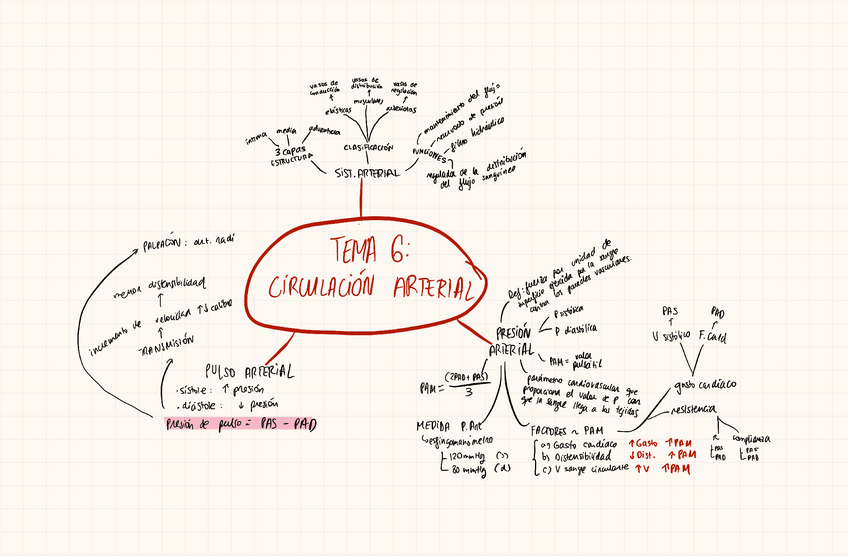 TEMA 6:
CIRCULACIÓN ARTERIAL
SIST. ARTERIAL
ESTRUCTURA
3 capas
íntima
media
adventicia
CLASIFICACIÓN
elásticas
musculares
arteriolas
vasos de
conducción
vasos de
distribución
vasos de
regulación
FUNCIONES
mantenimiento del flujo
reservorio de presión
filtro hidráulico
regulador de la distribución
del flujo sanguíneo
PRESIÓN
ARTERIAL
Def: fuerza por unidad de
superficie ejercida por la sangre
contra las paredes vasculares.
P sistólica
P diastólica
PAM = valor
pulsátil
parámetro cardiovascular que
proporciona el valor de P con
que la sangre llega a los tejidos
PAM = (2PAD + PAS)
3
MEDIDA P. Art
esfingomanómetro
120 mmHg (s)
80 mmHg (d)
FACTORES ~ PAM
a) Gasto cardíaco ↑Gasto ↑PAM
b) Distensibilidad ↓Dist. ↑PAM
c) V sangre circulante ↑V ↑PAM
gasto cardíaco
V sistólico
F. card
PAS
PAD
resistencia
R
PAS
PAD
complianza
PAS
PAD
PULSO ARTERIAL
· sístole: ↑ presión
· diástole: ↓ presión
Presión de pulso = PAS - PAD
TRANSMISIÓN
incremento de velocidad ↑↓ calibre
menor distensibilidad
PALPACIÓN: art. radi